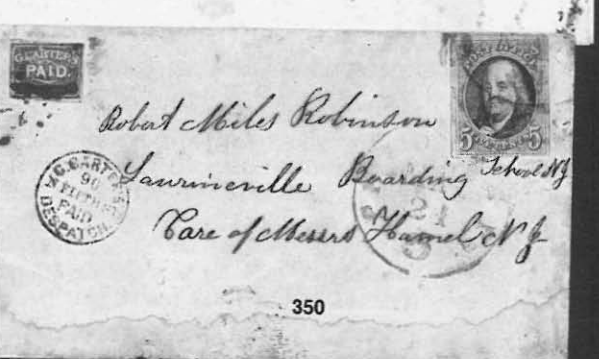 G. CARTER'S
PAID.
POST OFFICE
5 5
CENTS
Robert Miles Robinson
Lawrineville Boarding School NJ
Care of Messrs Hamel NJ
G. CARTER'S
90
PAID
DESPATCH.
21
5
350